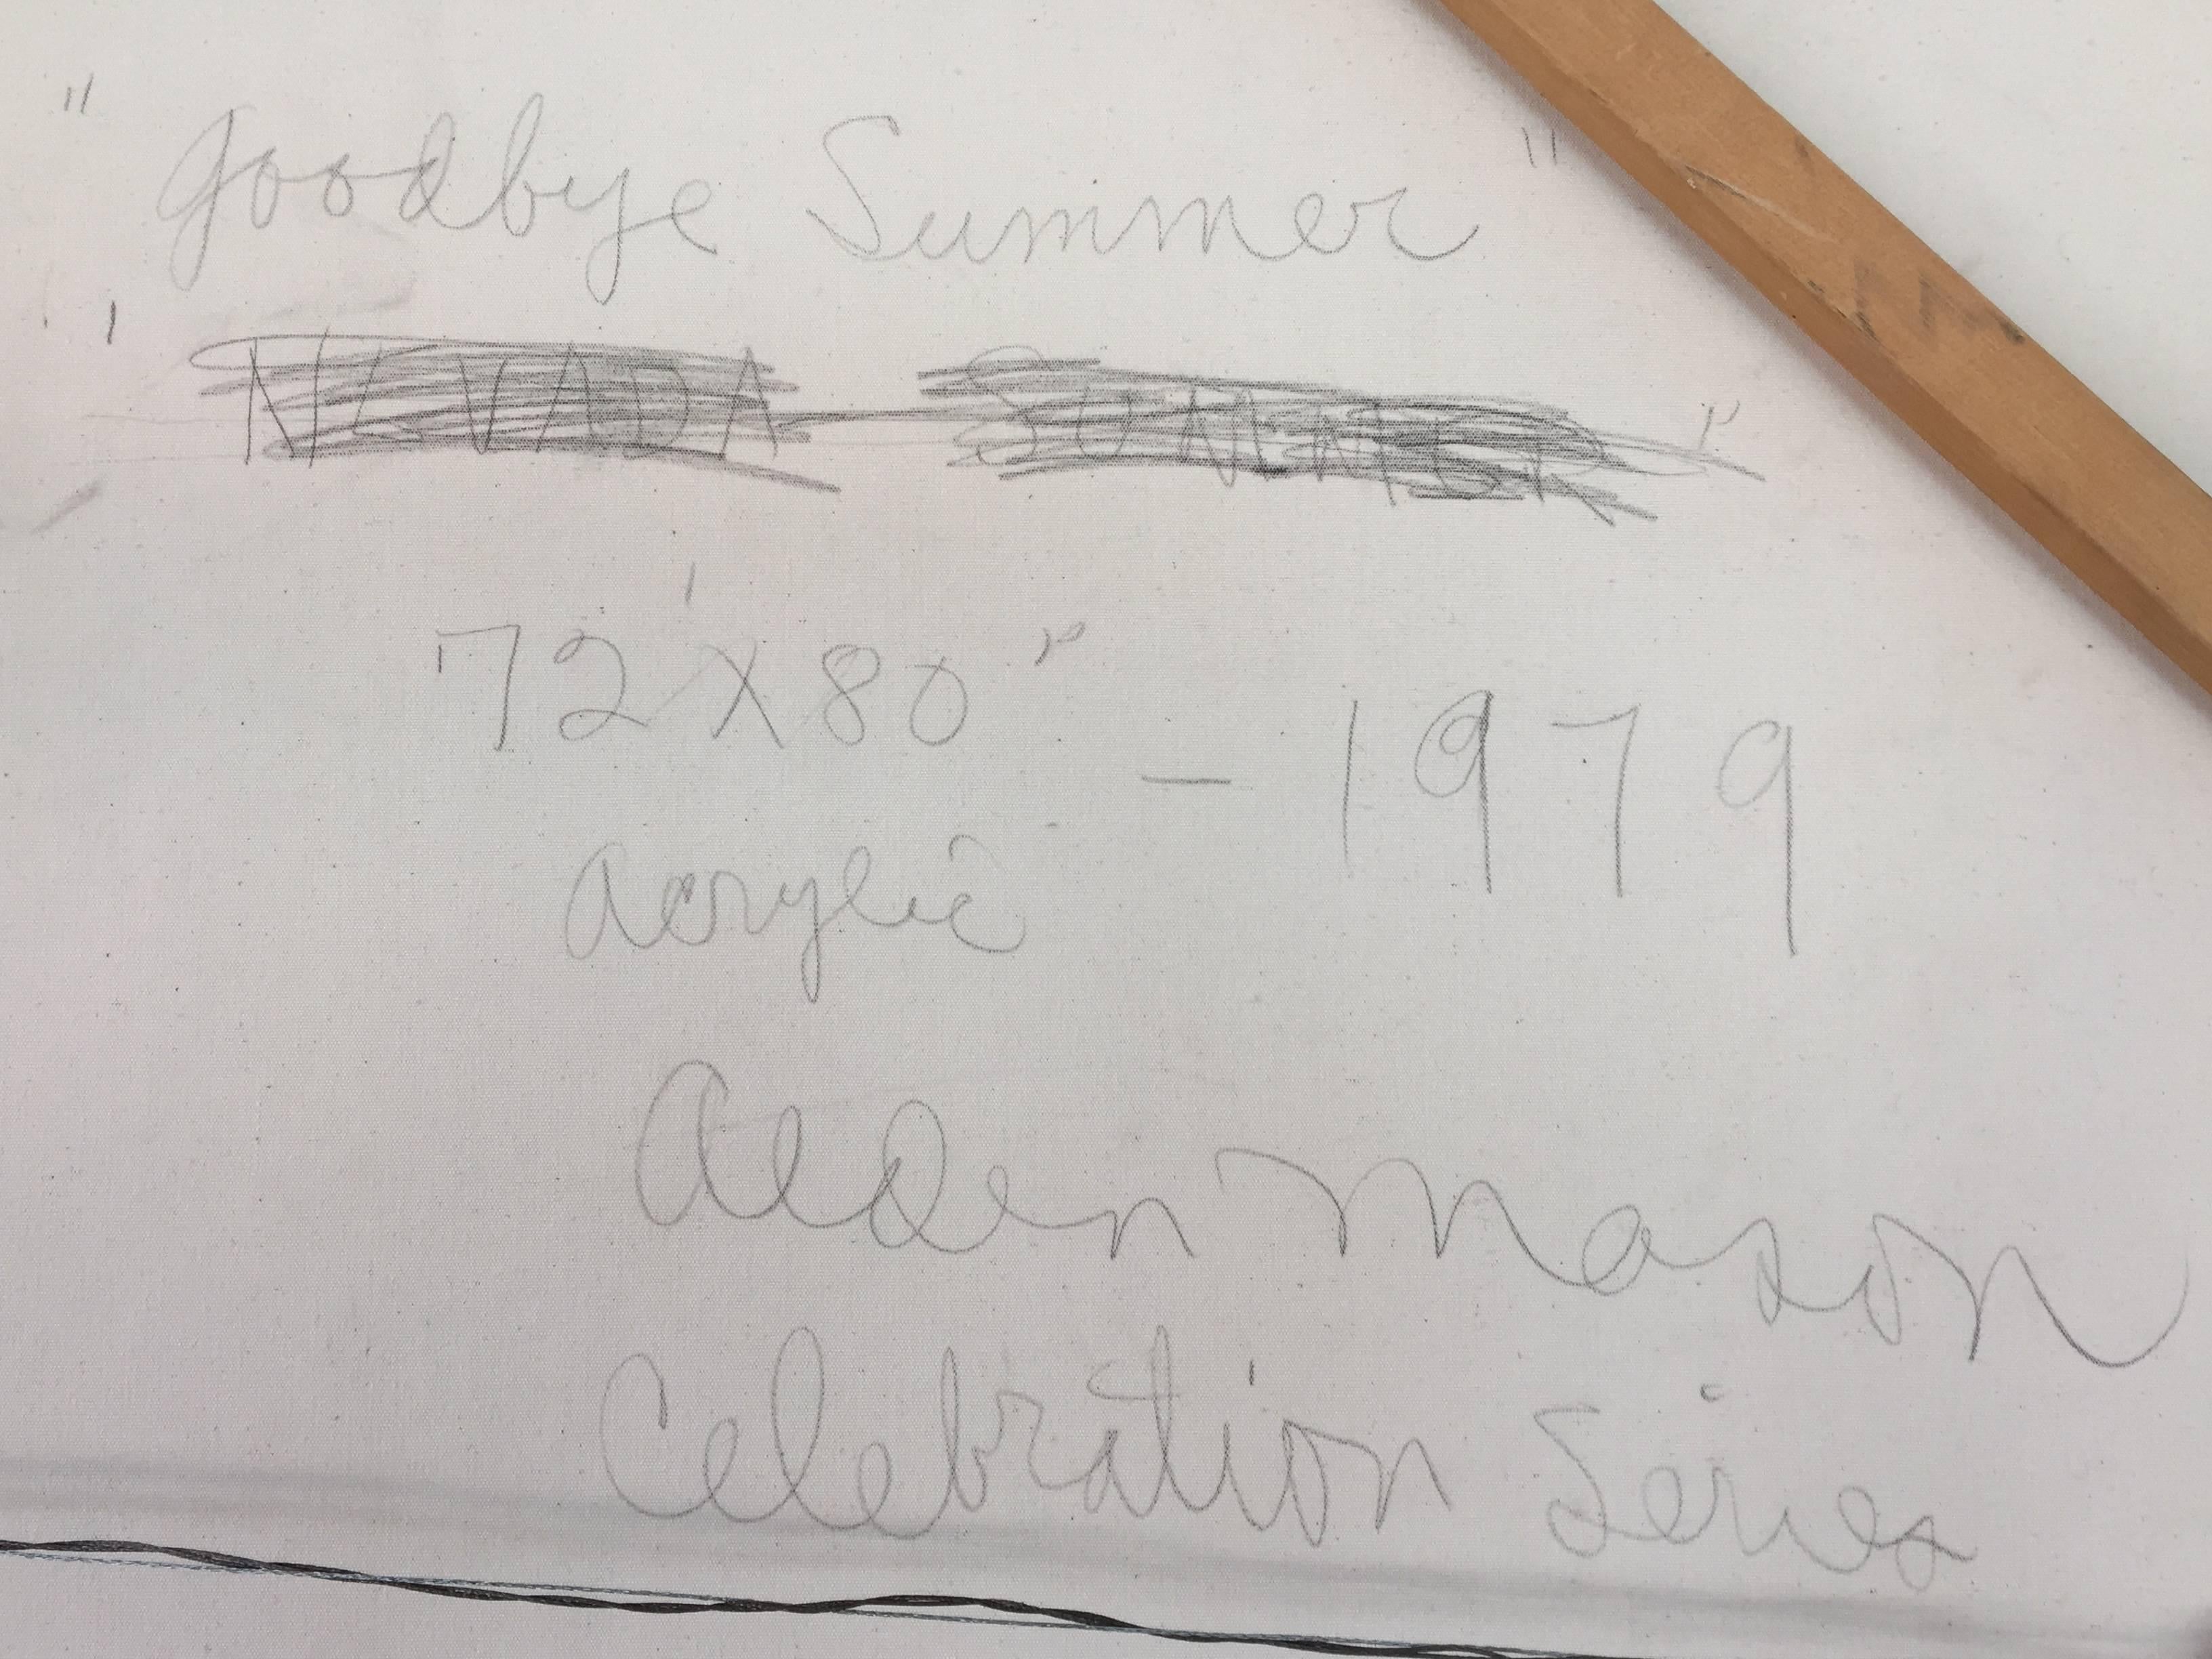 "Goodbye Summer"
"NEVADA SUMMER"
72 X 80" - 1979
acrylic
Alden Mason
Celebration Series